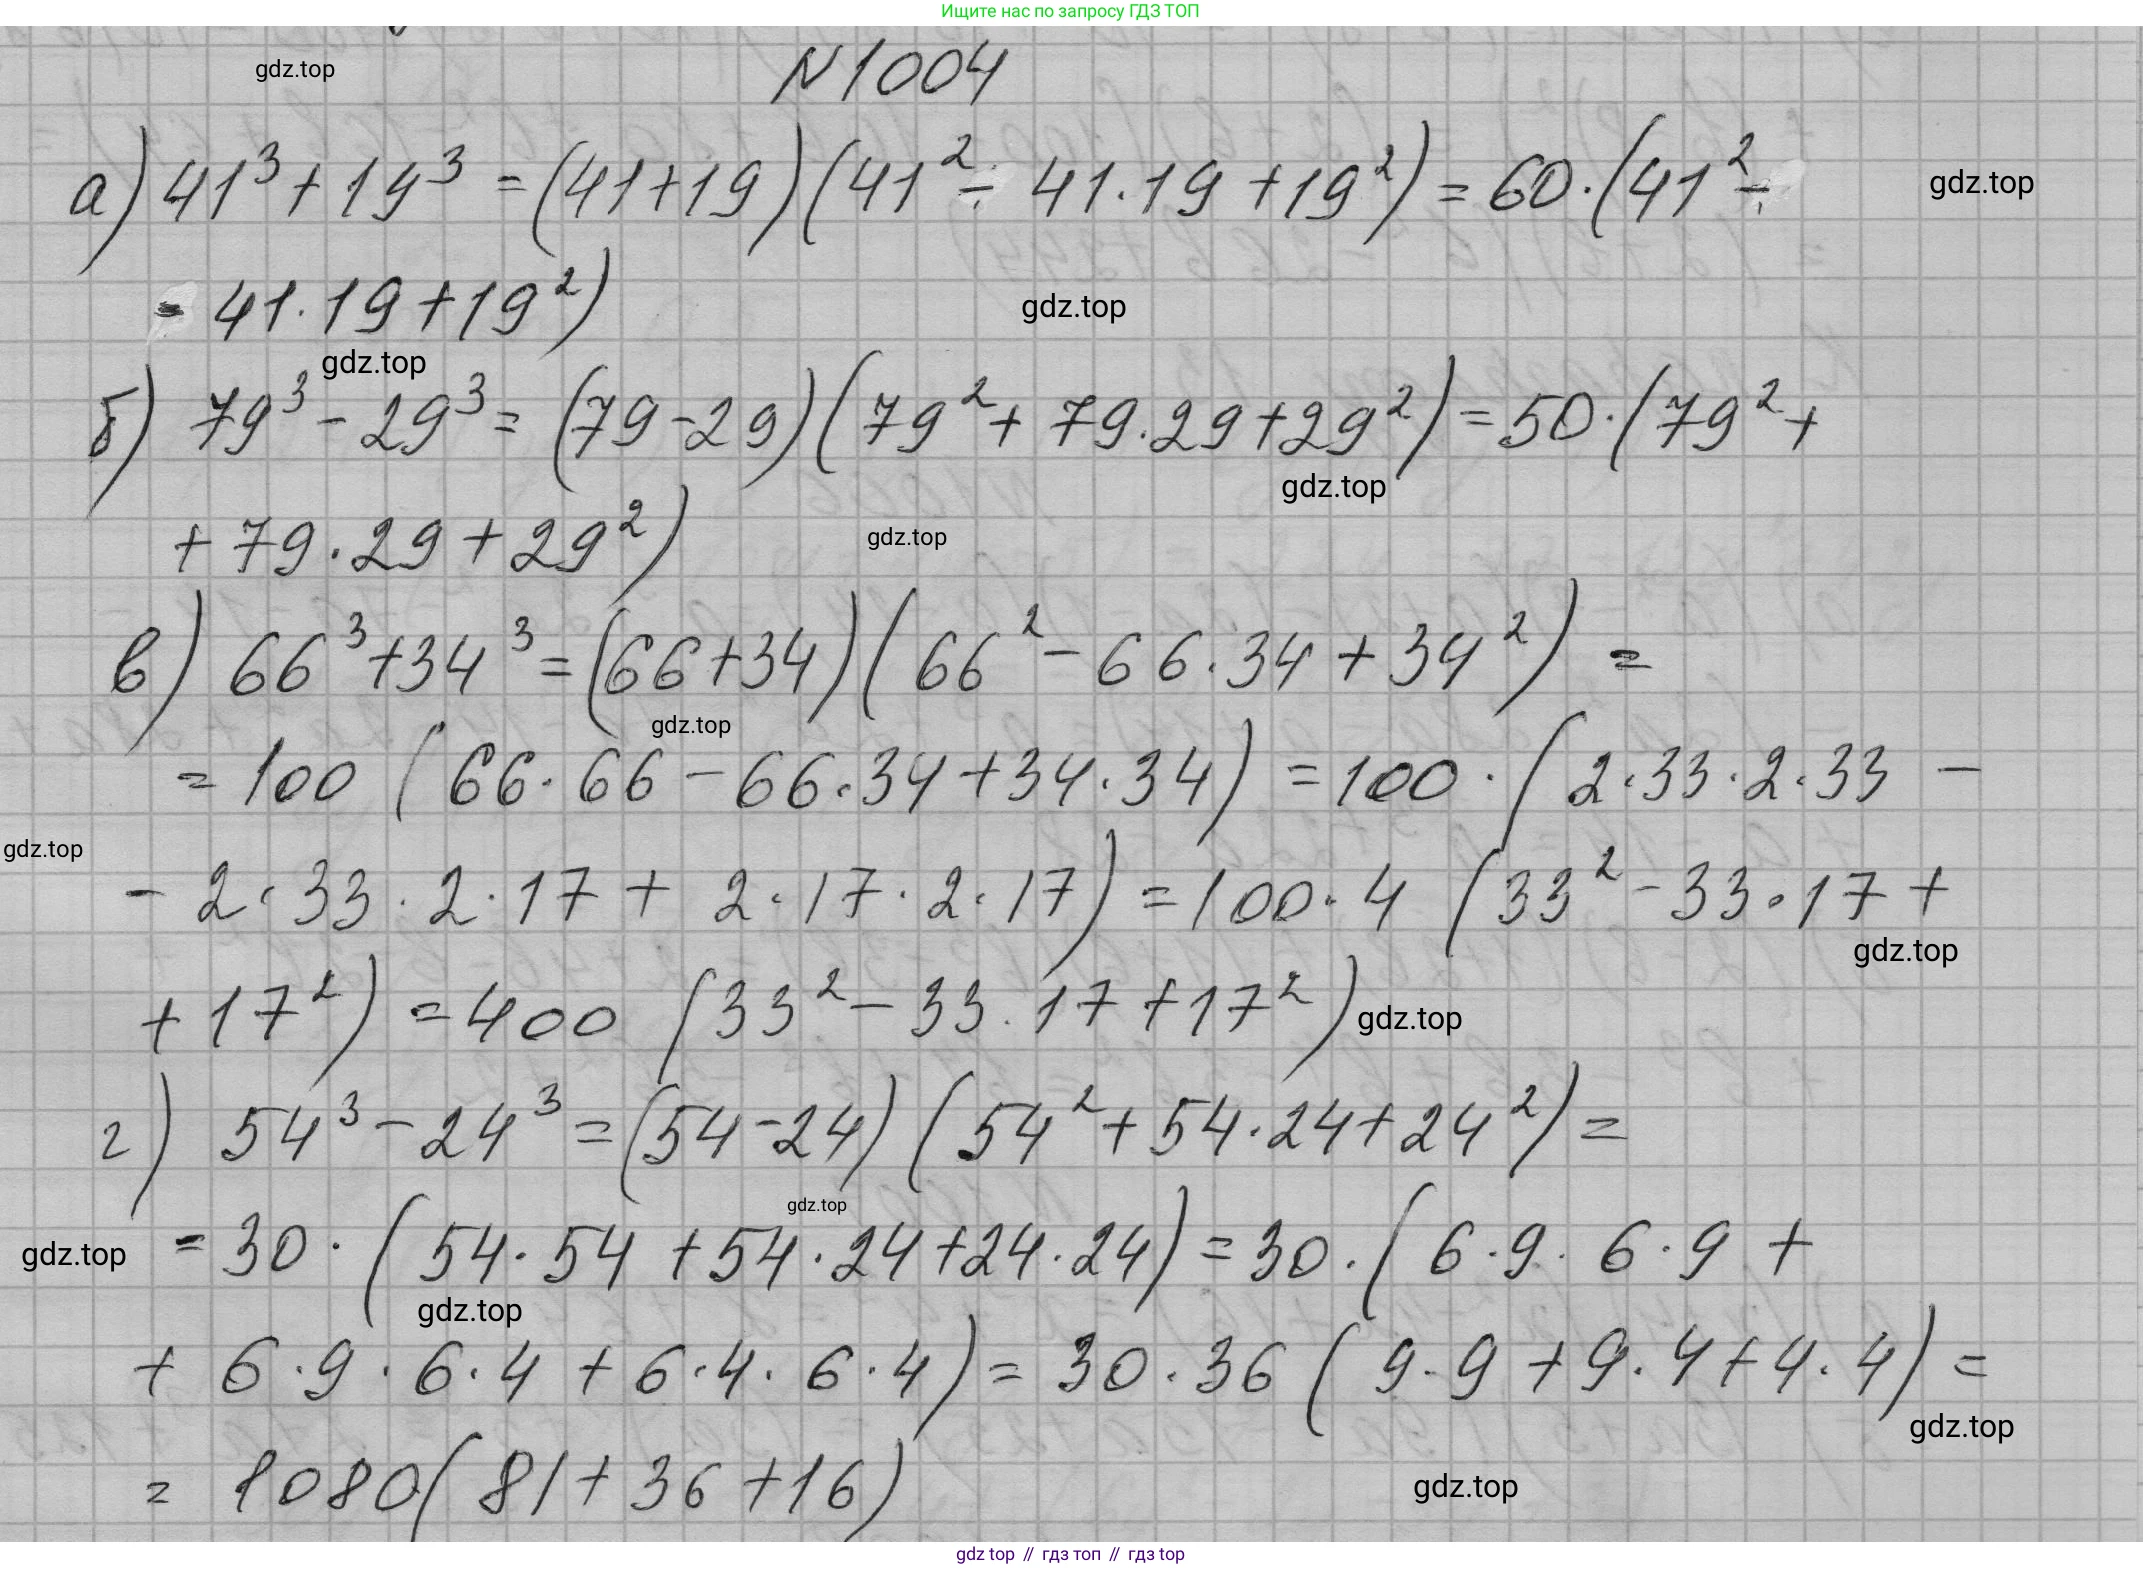 Ищите нас по запросу ГДЗ ТОП
N1004
gdz.top
а) 41³ + 19³ = (41+19)(41² - 41·19 + 19²) = 60·(41² -
gdz.top
- 41·19 + 19²)
gdz.top
gdz.top
б) 79³ - 29³ = (79-29)(79² + 79·29 + 29²) = 50·(79² +
gdz.top
+ 79·29 + 29²)
gdz.top
в) 66³ + 34³ = (66+34)(66² - 66·34 + 34²) =
gdz.top
= 100 (66·66 - 66·34 + 34·34) = 100·(2·33·2·33 -
gdz.top
- 2·33·2·17 + 2·17·2·17) = 100·4 (33² - 33·17 +
gdz.top
+ 17²) = 400 (33² - 33·17 + 17²)
gdz.top
г) 54³ - 24³ = (54-24)(54² + 54·24 + 24²) =
gdz.top
= 30·(54·54 + 54·24 + 24·24) = 30·(6·9·6·9 +
gdz.top
gdz.top
+ 6·9·6·4 + 6·4·6·4) = 30·36 (9·9 + 9·4 + 4·4) =
gdz.top
= 1080(81 + 36 + 16)
gdz.top
gdz top // гдз топ // гдз top